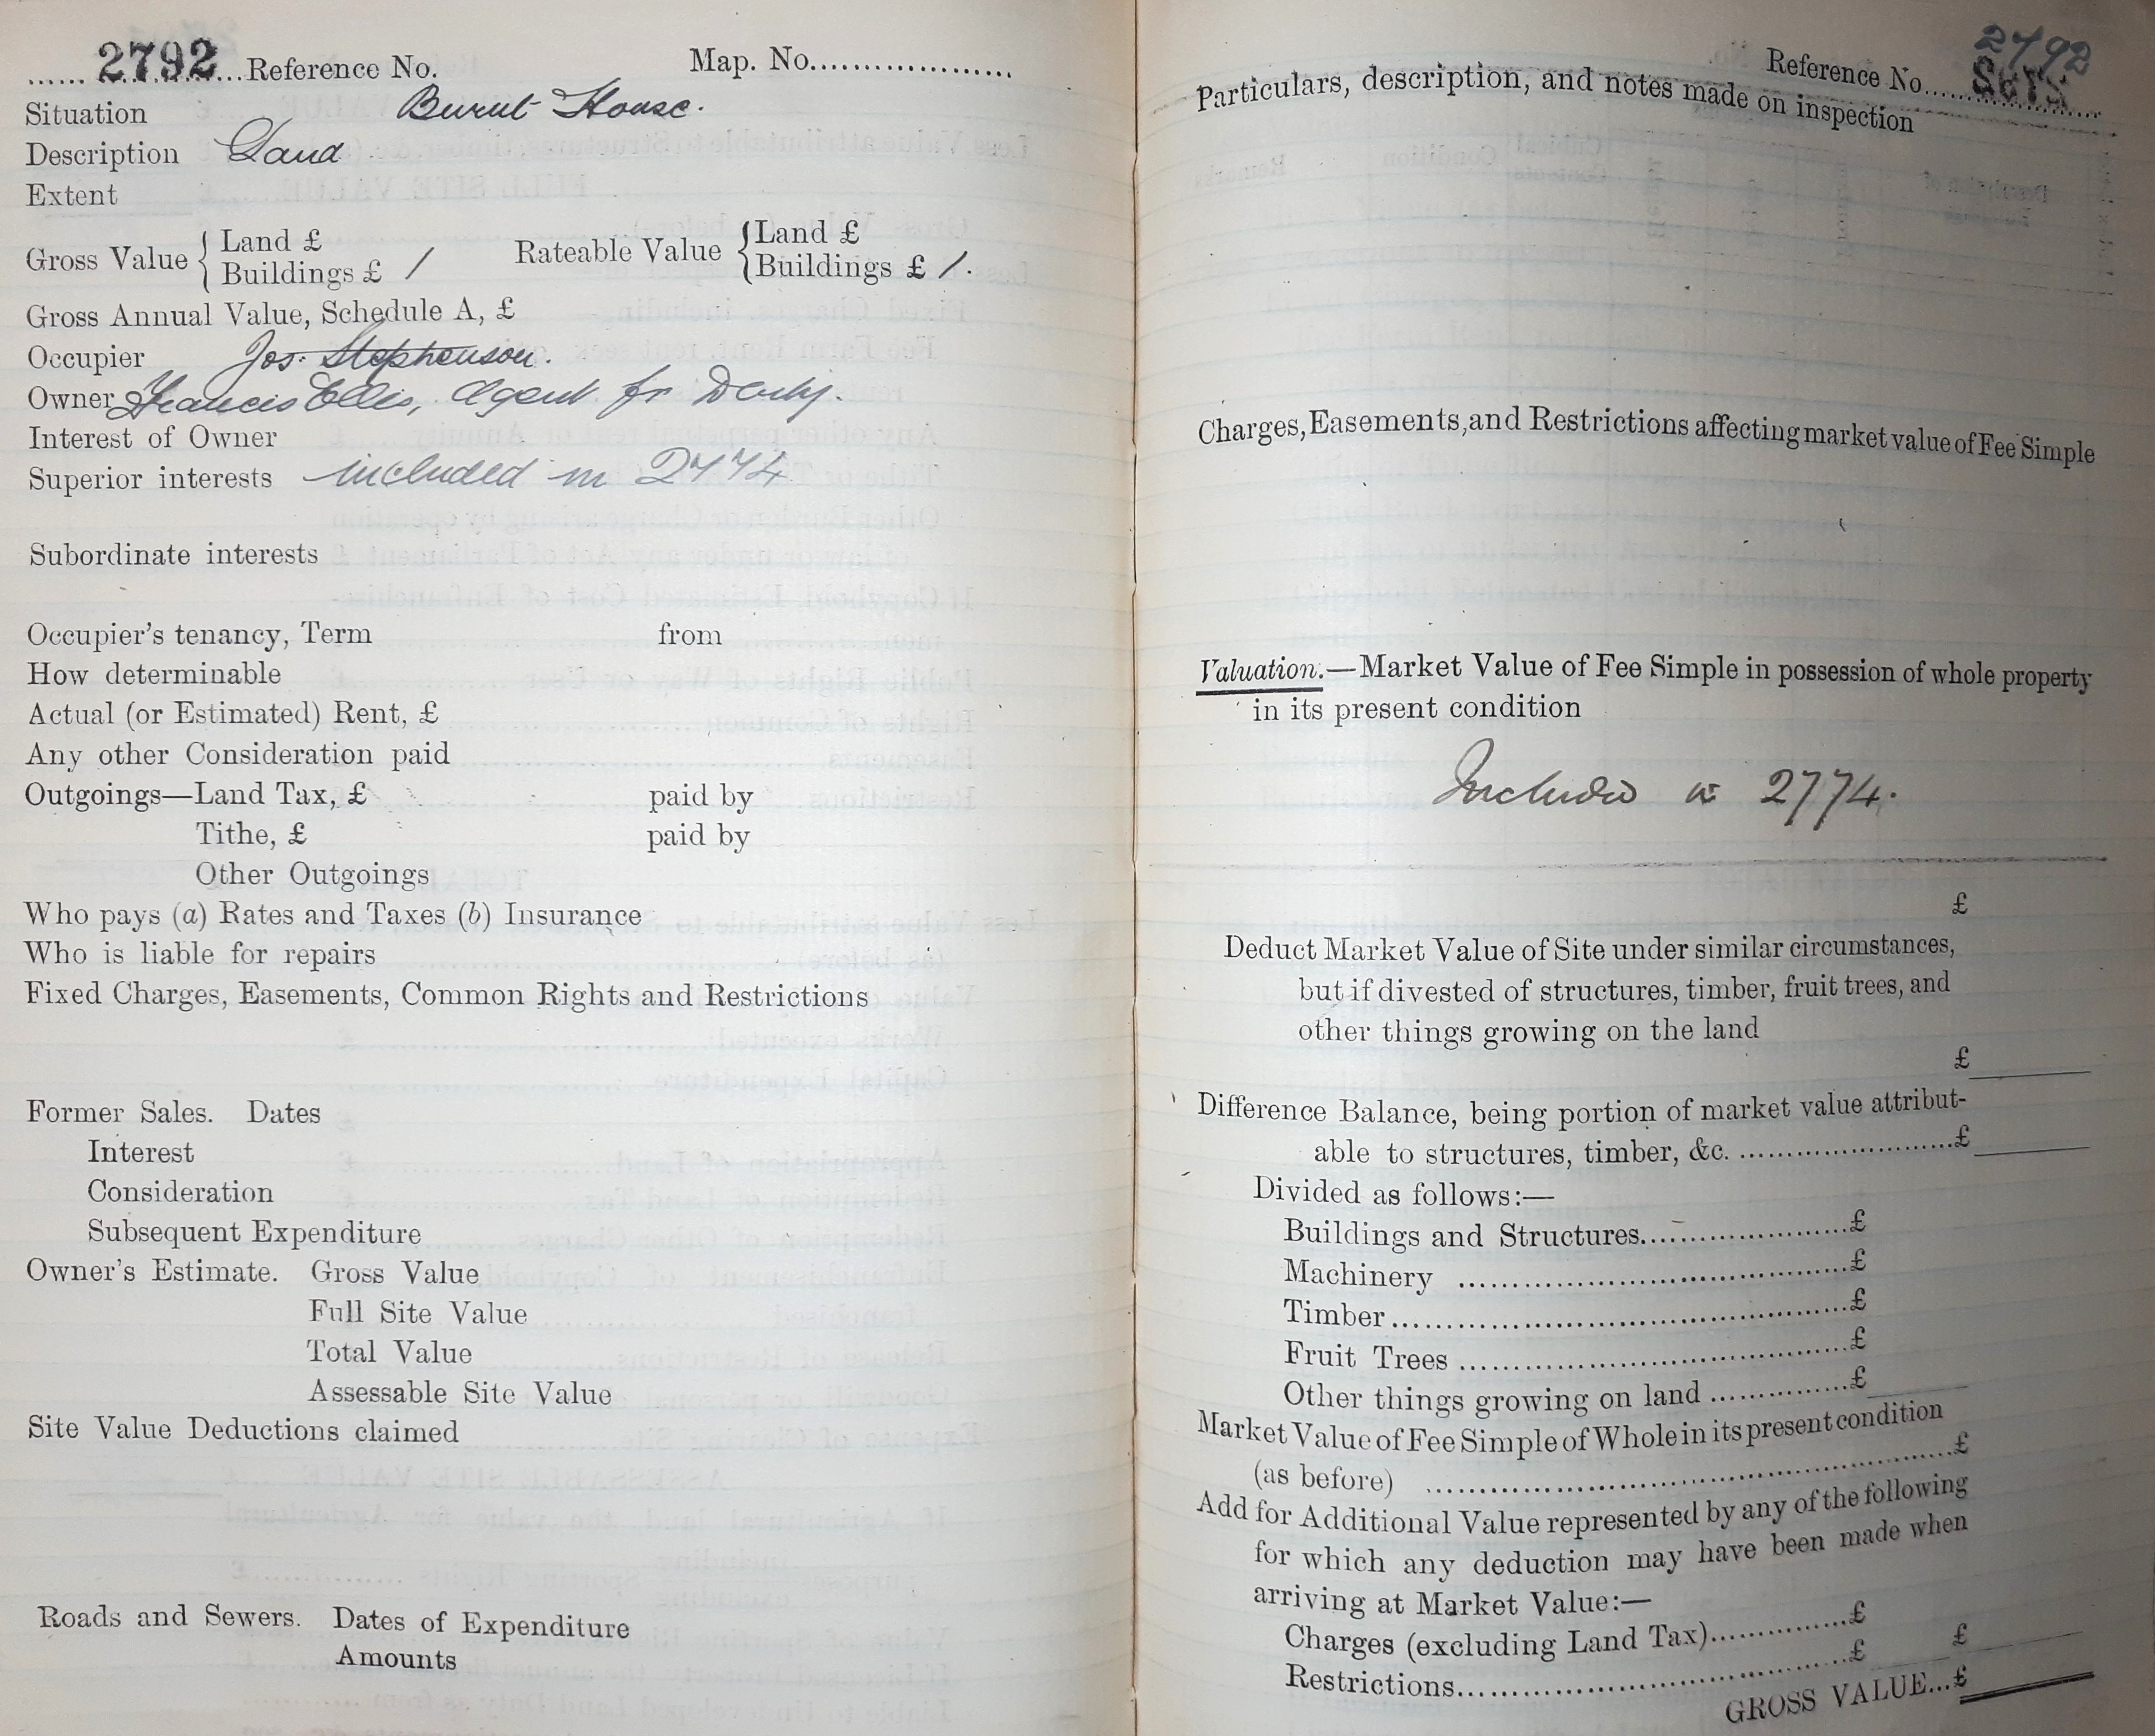 2792 Reference No. Map. No.
Situation Burnt House.
Description Land
Extent
Gross Value { Land £ Rateable Value { Land £
Buildings £ / Buildings £ /.
Gross Annual Value, Schedule A, £
Occupier Jos. Stephenson.
Owner Francis Ellis, Agent for Derby.
Interest of Owner
Superior interests included in 2774
Subordinate interests
Occupier's tenancy, Term from
How determinable
Actual (or Estimated) Rent, £
Any other Consideration paid
Outgoings—Land Tax, £ paid by
Tithe, £ paid by
Other Outgoings
Who pays (a) Rates and Taxes (b) Insurance
Who is liable for repairs
Fixed Charges, Easements, Common Rights and Restrictions
Former Sales. Dates
Interest
Consideration
Subsequent Expenditure
Owner's Estimate. Gross Value
Full Site Value
Total Value
Assessable Site Value
Site Value Deductions claimed
Roads and Sewers. Dates of Expenditure
Amounts
2792
Reference No.
Particulars, description, and notes made on inspection
Charges, Easements, and Restrictions affecting market value of Fee Simple
Valuation.—Market Value of Fee Simple in possession of whole property
in its present condition
Included in 2774.
£
Deduct Market Value of Site under similar circumstances,
but if divested of structures, timber, fruit trees, and
other things growing on the land
£
Difference Balance, being portion of market value attribut-
able to structures, timber, &c. £
Divided as follows:—
Buildings and Structures £
Machinery £
Timber £
Fruit Trees £
Other things growing on land £
Market Value of Fee Simple of Whole in its present condition
(as before) £
Add for Additional Value represented by any of the following
for which any deduction may have been made when
arriving at Market Value:—
Charges (excluding Land Tax) £
Restrictions £ £
GROSS VALUE...£